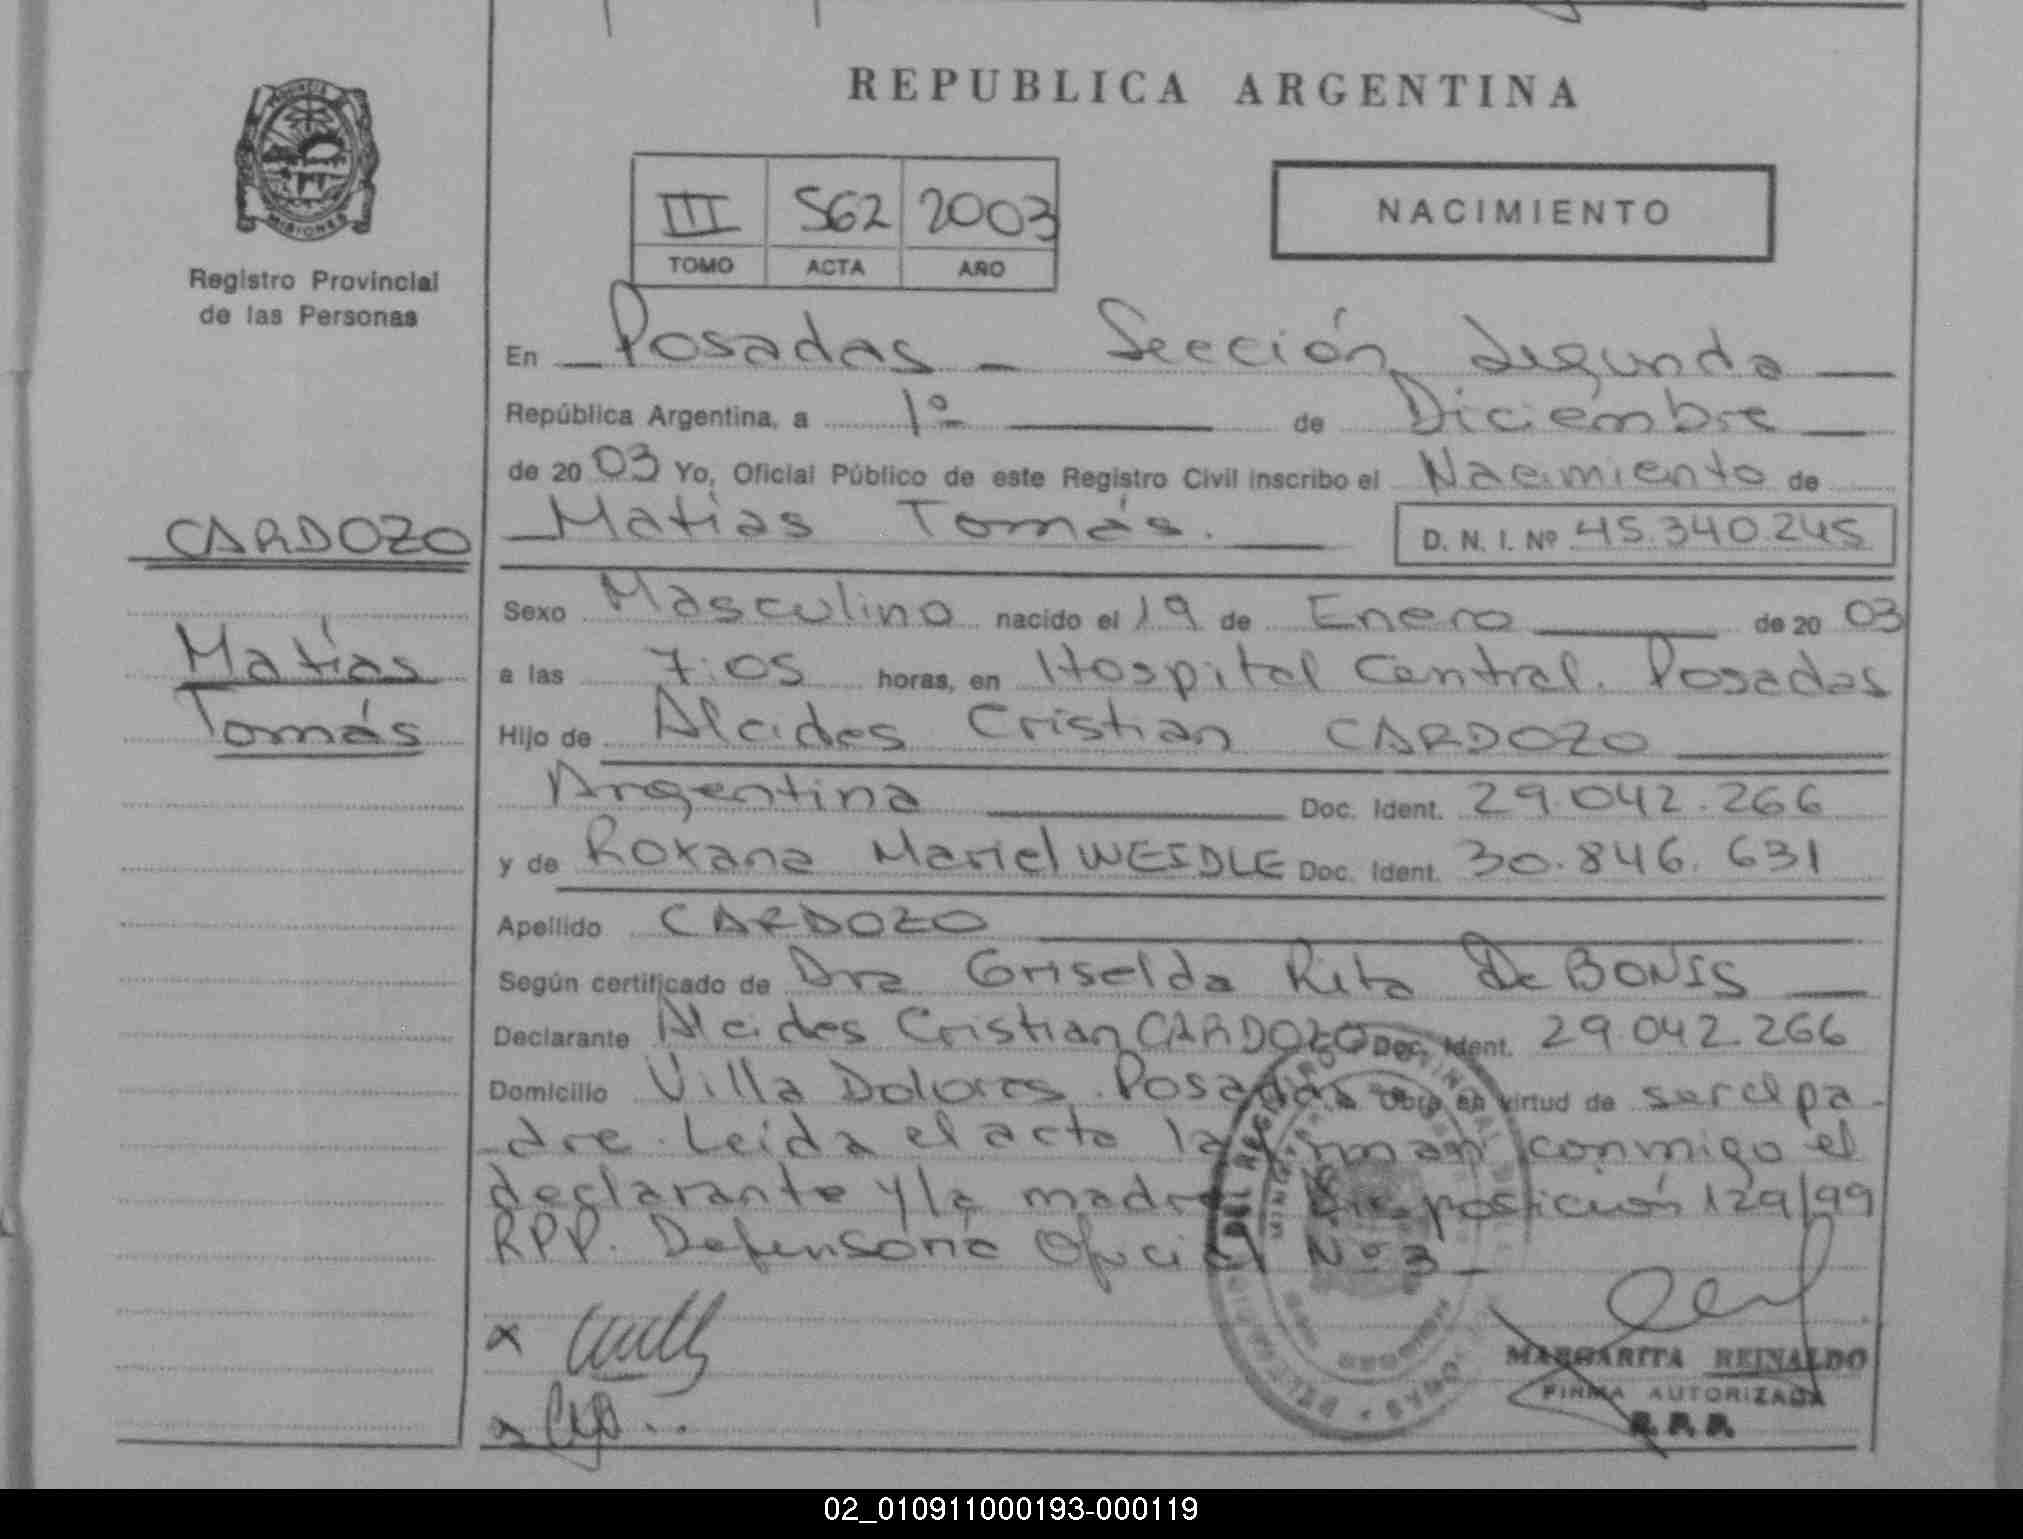 REPUBLICA ARGENTINA
PROVINCIA DE
MISIONES
Registro Provincial
de las Personas
III 562 2003
TOMO ACTA AÑO
NACIMIENTO
En Posadas - Sección Segunda
República Argentina, a 1º de Diciembre
de 20 03 Yo, Oficial Público de este Registro Civil inscribo el Nacimiento de
Matías Tomás. D. N. I. Nº 45.340.245
CARDOZO
Matías
Tomás
Sexo Masculino nacido el 19 de Enero de 20 03
a las 7:05 horas, en Hospital Central. Posadas
Hijo de Alcides Cristian CARDOZO
Argentina Doc. Ident. 29.042.266
y de Roxana Mariel WEIDLE Doc. Ident. 30.846.631
Apellido CARDOZO
Según certificado de Dra Griselda Rita De BONIS
Declarante Alcides Cristian CARDOZO Doc. Ident. 29.042.266
Domicilio Villa Dolores. Posadas Obra en virtud de ser el pa-
dre. Leída el acta la firman conmigo el
declarante y la madre Disposición 129/99
RPP. Defensoría Oficial Nº 3
MARGARITA REINALDO
FIRMA AUTORIZADA
R.P.P.
02_010911000193-000119